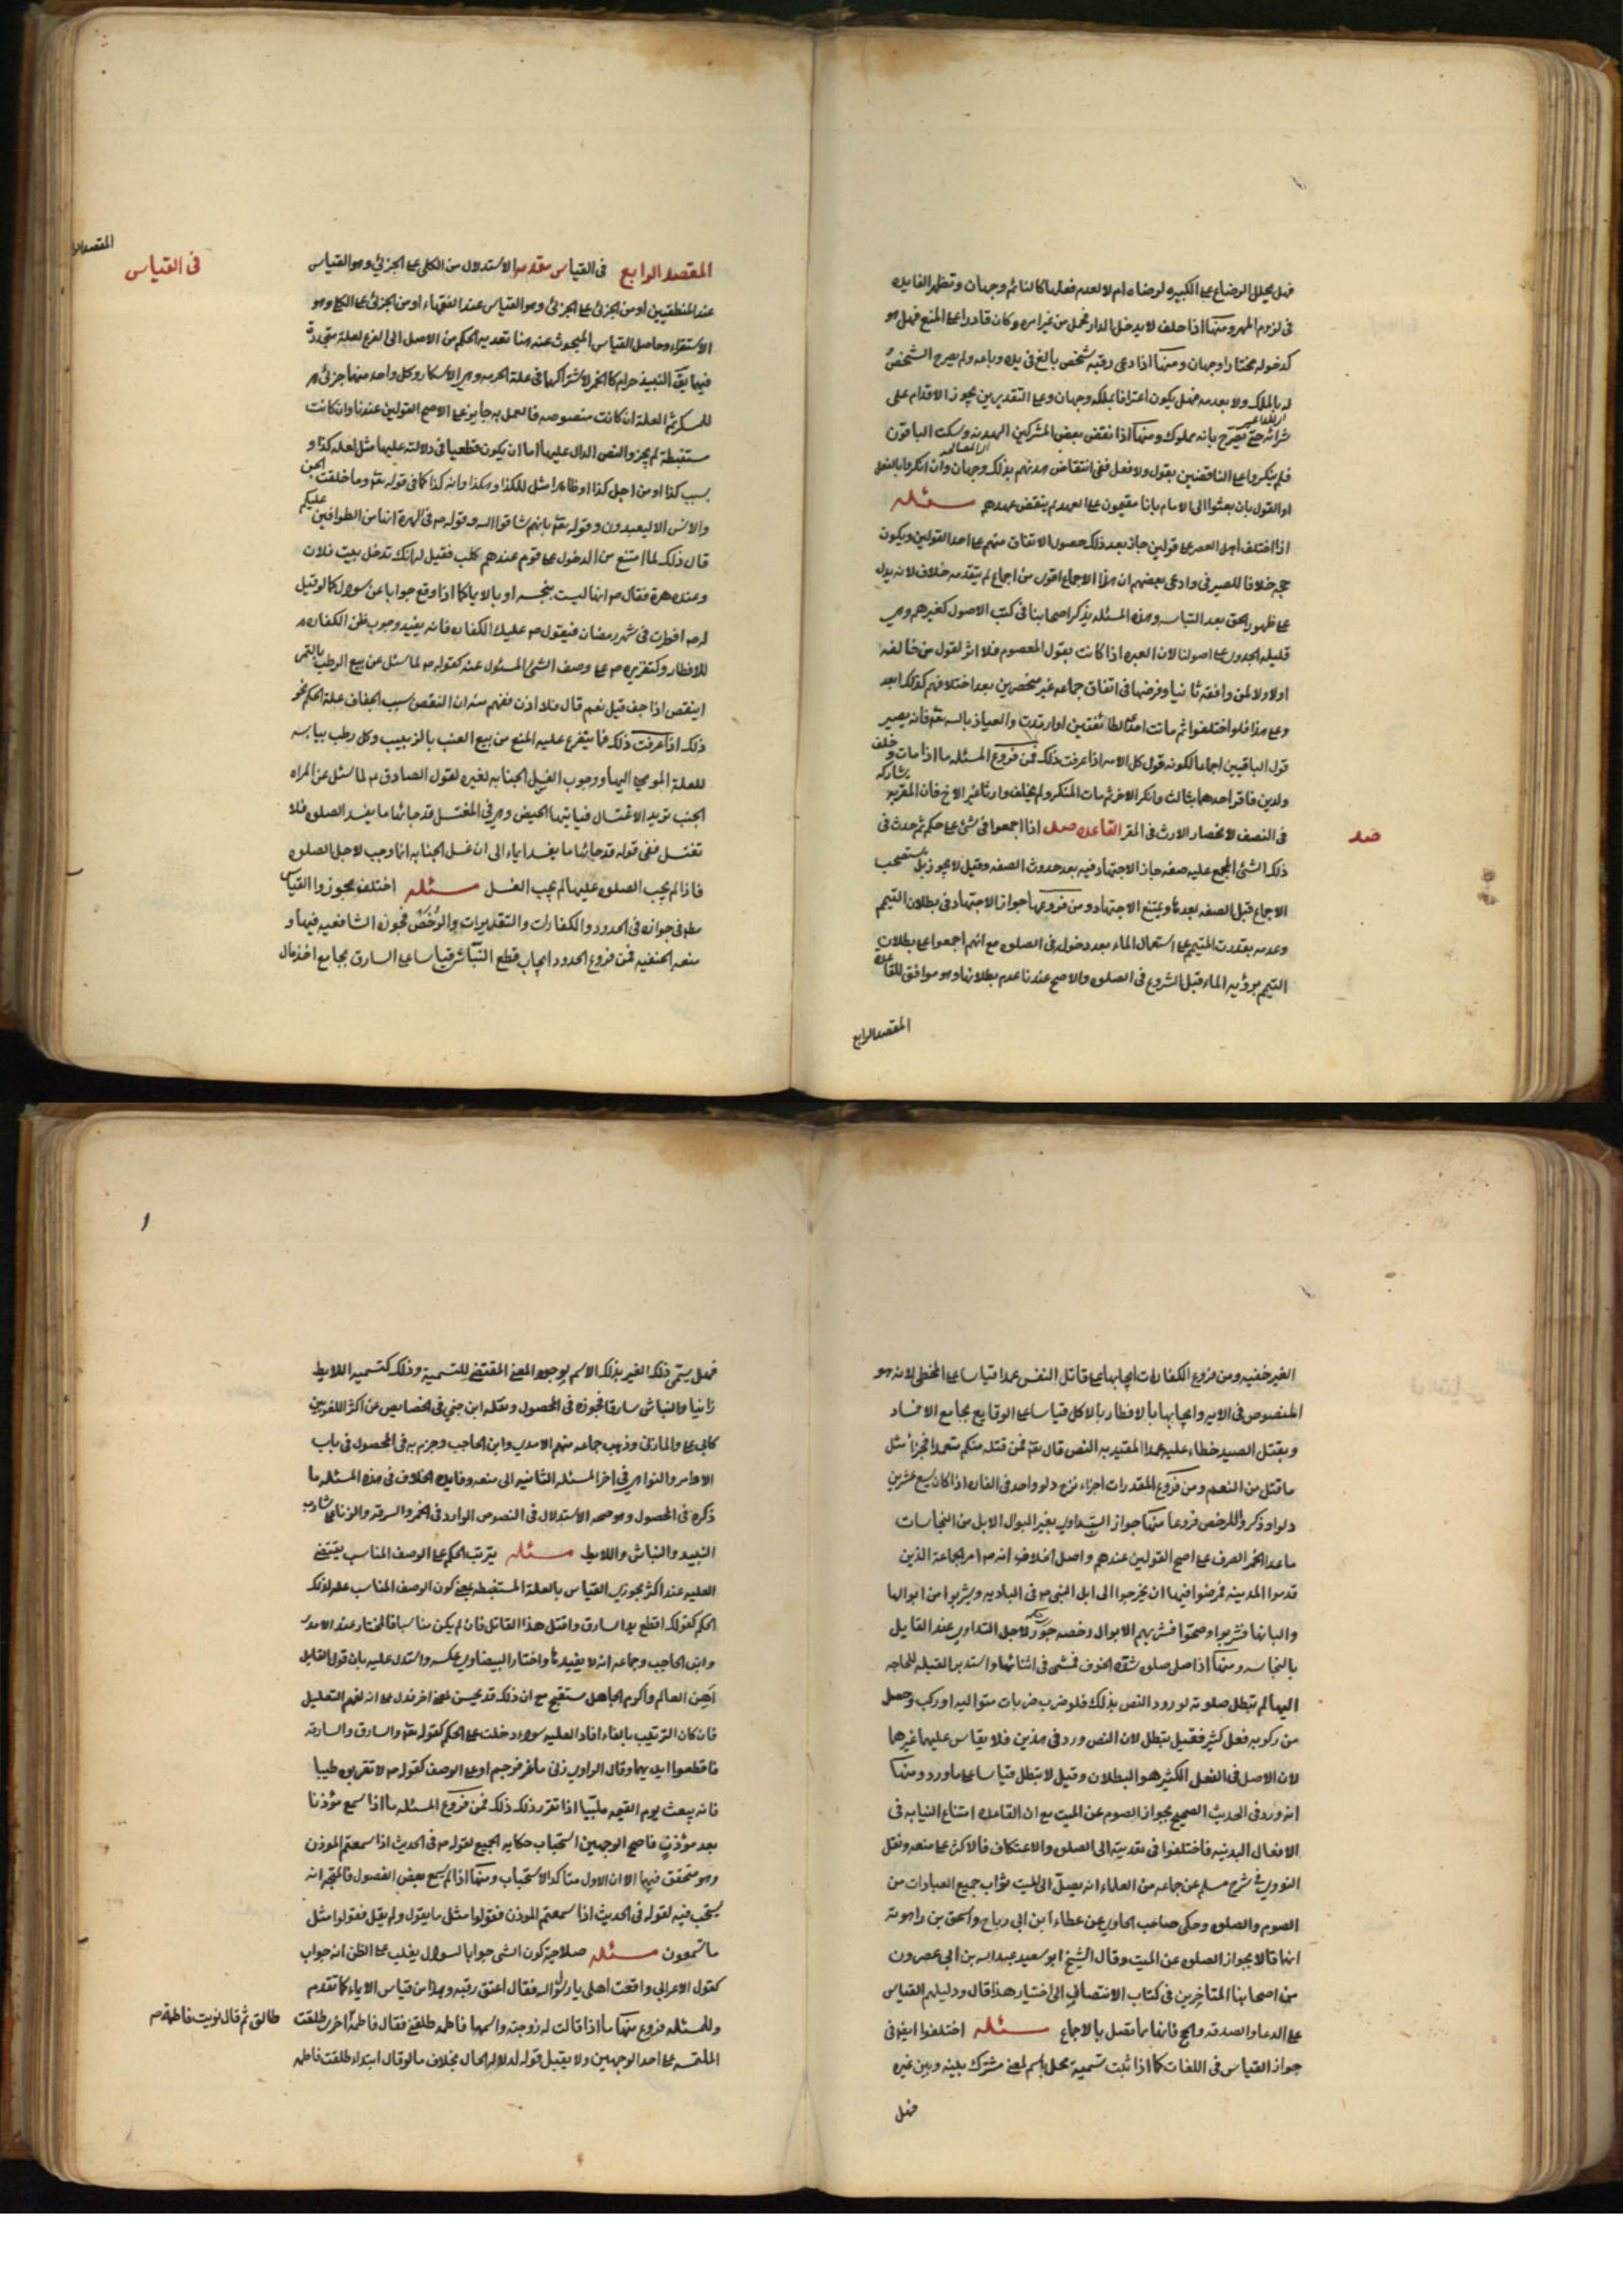 فهل يحلل الرضاع على الكبيرة لو رضاه ام لا لعدم فعلها كالنائم وجهان وتظهر الفايده
فى لزوم المهر ومنها اذا حلف لا يدخل الدار فحمل من غير امره وكان قادرا على المنع فهل هو
كدخوله مختارا وجهان ومنها اذا دعى رقبه شخص بالغ فى يده وباعه ولم يصرح الشخص
له بالملك ولا بعدمه فهل يكون اعترافا بملكه وجهان وعلى التقديرين يجوز الاقدام على
شرائه حتى يصرح بانه مملوك ومنها اذا نقض بعض المشركين الهدنه وسكت الباقون
فلم ينكروا على الناقضين بقول ولا فعل ففى انتقاض هدنتهم بذلك وجهان وان انكروا بالفعل
او القول بان بعثوا الى الامام بانا مقيمون على العهد لم ينتقض عهدهم مسئله
اذا اختلف اهل العصر على قولين جاز بعد ذلك حصول الاتفاق منهم على احد القولين ويكون
حجه خلافا للصيرفى وادعى بعضهم ان هذا الاجماع اقوى من اجماع لم يتقدمه خلاف لانه يدل
على ظهور الحق بعد التباسه وهذه المسئله يذكر اصحابنا فى كتب الاصول كغيرهم وهى
قليله الجدوى على اصولنا لان العبره اذا كانت بقول المعصوم فلا اثر لقول من خالفه
اولا ولا لمن وافقه ثانيا وفرضها فى اتفاق جماعه غير منحصرين بعد اختلافهم كذلك ابعد
وعلى هذا فلو اختلفوا ثم ماتت احدى الطائفتين او ارتدت والعياذ بالله تعه فانه يصير
قول الباقيين اجماعا لكونه قول كل الامه اذا عرفت ذلك فمن فروع المسئله ما اذا مات وخلف
ولدين فاقر احدهما بثالث وانكر الاخر ثم مات المنكر ولم يخلف وارثا غير الاخ فان المقر به يشاركه
فى النصف لانحصار الارث فى المقر القاعده صد اذا اجمعوا فى شئ على حكم ثم حدث فى
صد
ذلك الشئ المجمع عليه صفه جاز الاجتهاد فيه بعد حدوث الصفه وقيل لا يجوز بل يستصحب
الاجماع قبل الصفه بعدها ويمتنع الاجتهاد ومن فروعها جواز الاجتهاد فى بطلان التيمم
وعدمه بقدرت المتيمم على استعمال الماء بعد دخوله فى الصلوه مع انهم اجمعوا على بطلان
التيمم برؤيه الماء قبل الشروع فى الصلوه والاصح عندنا عدم بطلانها وهو موافق للقاعده
المقصد الرابع
المقصد الرابع فى القياس مقدمه الاستدلال من الكلى على الجزئى وهو القياس
فى القياس
عند المنطقيين او من الجزئى على الجزئى وهو القياس عند الفقهاء او من الجزئى على الكلى وهو
الاستقراء وحاصل القياس المبحوث عنه هنا تعديه الحكم من الاصل الى الفرع لعلة متحدة
فيهما يق النبيذ حرام كالخمر لاشتراكهما فى علة الحرمه وهى الاسكار وكل واحد منهما جزئى
للمسكر ثم العلة ان كانت منصوصه فالعمل به جايز على الاصح القولين عندنا وان كانت
مستنبطة لم يجز والنص الدال عليها اما ان يكون قطعيا فى دلالته عليها مثل لعله كذا و
بسبب كذا او من اجل كذا او ظاهرا مثل لكذا وبكذا وانه كذا كما فى قوله تعه وما خلقت الجن
والانس الا ليعبدون وقوله تعه بانهم شاقوا الله وقوله ص فى الهرة انها من الطوافين عليكم
قال ذلك لما امتنع من الدخول على قوم عندهم كلب فقيل له انك تدخل بيت فلان
وعنده هرة فقال ص انها ليست بنجسه او بالايماء كما اذا وقع جوابا عن سوال كما لو قيل
له ص افطرت فى شهر رمضان فيقول ص عليك الكفاره فانه يفيد وجوب ظن الكفاره
للافطار وكتقريره ص على وصف الشئ المسئول عنه كقوله ص لما سئل عن بيع الرطب بالتمر
اينقص اذا جف قيل نعم قال فلا اذن ففهم منه ان النقص سبب الجفاف علة الحكم نحو
ذلك اذا عرفت ذلك فما يتفرع عليه المنع من بيع العنب بالزبيب وكل رطب بيابسه
للعلة المومى اليها ووجوب الغسل الجنابه لغيره لقول الصادق ع لما سئل عن المراه
الجنب تريد الاغتسال فياتيها الحيض وهى فى المغتسل قد جائها ما يفسد الصلوه فلا
تغتسل ففى قوله قد جائها ما يفسد ايماء الى ان غسل الجنابه انما وجب لاجل الصلوه
فاذا لم يجب الصلوه عليها لم يجب الغسل مسئله اختلف مجوزوا القياس
مط فى جوازه فى الحدود والكفارات والتقديرات والرخص فجوزه الشافعيه فيها و
منعه الحنفيه فمن فروع الحدود ايجاب قطع النباش قياسا على السارق بجامع اخذ مال
الغير خفيه ومن فروع الكفارات ايجابها على قاتل النفس عمدا قياسا على المخطى لانه هو
المنصوص فى الايه وايجابها بالافطار بالاكل قياسا على الوقايع بجامع الافساد
وبقتل الصيد خطاء عليه عمدا المقيد به النص قال تعه فمن قتله منكم متعمدا فجزأ مثل
ما قتل من النعم ومن فروع المقدرات اجزاء نزح دلو واحد فى الفاره اذا كان يسع عشرين
دلوا وذكروا للرخص فروعا منها جواز التداوى بغير البوال الابل من النجاسات
ما عدا الخمر الصرف على اصح القولين عندهم واصل الخلاف انه ص امر الجماعة الذين
قدموا المدينه فمرضوا فيها ان يخرجوا الى ابل النبى ص فى الباديه ويشربوا من ابوالها
والبانها فشربوا وصحوا فشربهم الابوال رخصه جوزت لاجل التداوى عند القايل
بالنجاسه ومنها اذا صلى صلوه شدة الخوف فمشى فى اثنائها واستدبر القبله للحاجه
اليها لم تبطل صلوته لورود النص بذلك فلو ضرب ضربات متواليه او ركب وحصل
من ركوبه فعل كثير فقيل تبطل لان النص ورد فى هذين فلا يقاس عليهما غيرهما
لان الاصل فى الفعل الكثير هو البطلان وقيل لا تبطل قياسا على ما ورد ومنها
انه ورد فى الحديث الصحيح بجواز الصوم عن الميت مع ان القاعده امتناع النيابه فى
الافعال البدنيه فاختلفوا فى تعديته الى الصلوه والاعتكاف فالاكثر على منعه ونقل
النووى فى شرح مسلم عن جماعه من العلماء انه يصل الى الميت ثواب جميع العبادات من
الصوم والصلوه وحكى صاحب الحاوى عن عطاء ابن ابى رباح واسحق بن راهويه
انهما قالا بجواز الصلوه عن الميت وقال الشيخ ابو سعيد عبدالله بن ابى عصرون
من اصحابنا المتاخرين فى كتاب الانتصاف الى اختيار هذا قال ودليلهم القياس
على الدعا والصدقه والحج فانها ما تصل بالاجماع مسئله اختلفوا ايضا فى
جواز القياس فى اللغات كما اذا ثبت تسمية محل باسم لمعنى مشترك بينه وبين غيره
فهل
فهل يسمى ذلك الغير بذلك الاسم لوجود المعنى المقتضى للتسمية وذلك كتسميه اللايط
زانيا والنباش سارقا فجوزه فى المحصول ونقله ابن جني فى الخصايص عن اكثر اللغويين
كابى على والمازنى وذهب جماعه منهم الامدى وابن الحاجب وجزم به فى المحصول فى باب
الاوامر والنواهى فى اخر المسئله الثانيه الى منعه وفايده الخلاف فى هذه المسئله ما
ذكره فى المحصول وهو صحه الاستدلال فى النصوص الوارد فى الخمر والسرقه والزنا على شارب
النبيذ والنباش واللايط مسئله يترتب الحكم على الوصف المناسب يقتضى
العليه عند اكثر مجوزى القياس بالعلة المستنبطه يعنى كون الوصف المناسب علة لذلك
الحكم كقولك اقطع يد السارق واقتل هذا القاتل فان لم يكن مناسبا فالمختار عند الامدى
وابن الحاجب وجماعه انه لا يفيدها واختار البيضاوى عكسه واستدل عليه بان قول القايل
اهن العالم واكرم الجاهل مستقبح مع ان ذلك قد يحسن لمعنى اخر فدل على انه لفهم التعليل
فان كان الترتيب بالفاء افاد العليه سواء دخلت على الحكم كقوله تعه والسارق والسارقه
فاقطعوا ايديهما وقال الراوى زنى ماعز فرجم او على الوصف كقوله ص لا تقربوه طيبا
فانه يبعث يوم القيمه ملبيا اذا تقرر ذلك ذلك فمن فروع المسئله ما اذا سمع مؤذنا
بعد مؤذن فاصح الوجهين استحباب حكايه الجميع لقوله ص فى الحديث اذا سمعتم الموذن
وهو متحقق فيهما الا ان الاول متاكد الاستحباب ومنها اذا لم يسمع بعض الفصول فالمتجه انه
يستحب فيه لقوله فى الحديث اذا سمعتم الموذن فقولوا مثل ما يقول ولم يقل فقولوا مثل
ما تسمعون مسئله صلاحية كون الشى جوابا لسوال يغلب على الظن انه جواب
كقول الاعرابى واقعت اهلى يا رسول الله فقال اعتق رقبه وهذا من قياس الايماء كما تقدم
وللمسئله فروع منها ما اذا قالت له زوجته واسمها فاطمه طلقنى فقال فاطمة اخرى طلقت
طالق ثم قال نويت فاطمة ص
الملتمسه على احد الوجهين ولا يقبل قوله لدلاله الحال بخلاف ما لو قال ابتداء طلقت فاطمه